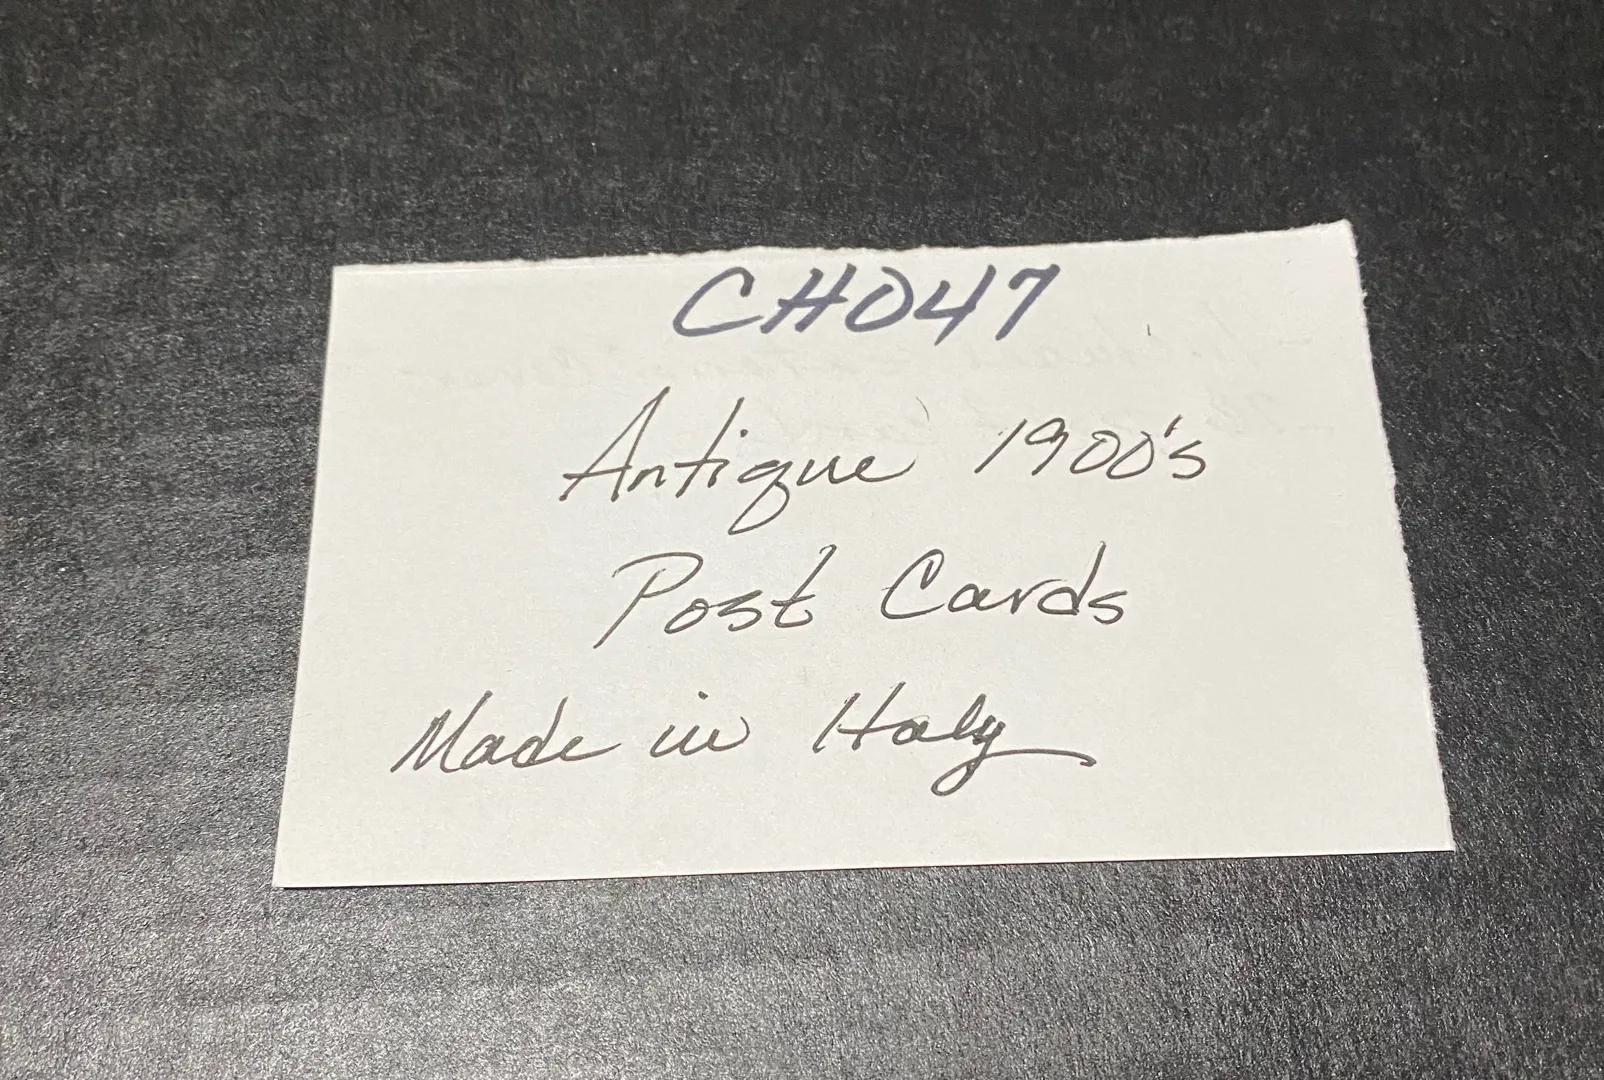 CH047
Antique 1900's
Post Cards
Made in Italy